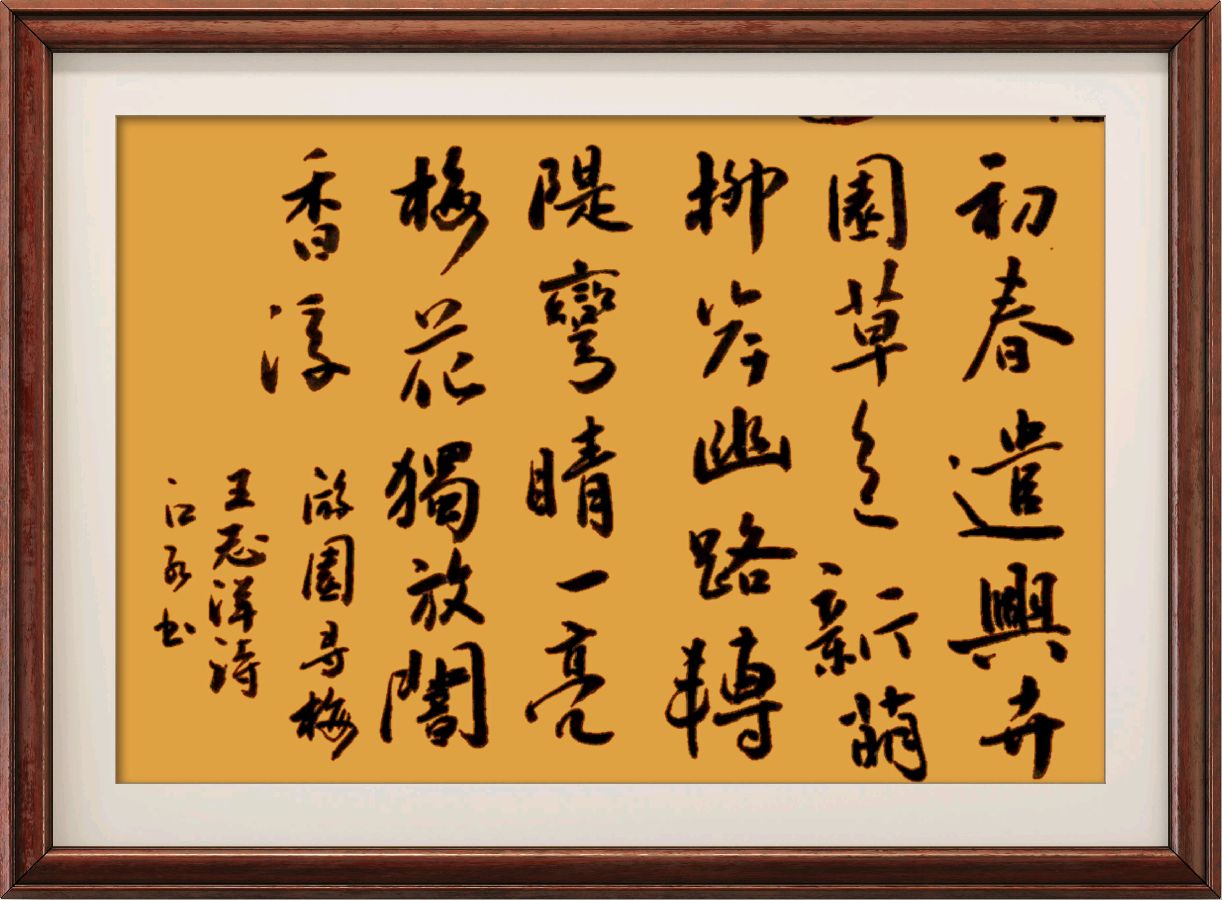 初春遣興卉
園草色新萌
柳岸幽路轉
隄彎睛一亮
梅花獨放闇
香淳
游園寻梅
王志洋詩
江永书